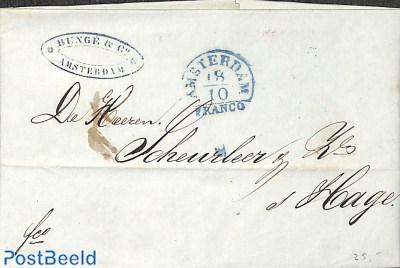 BUNGE & Co.
AMSTERDAM
AMSTERDAM
18/10
FRANCO
De Heeren.
Scheurleer & Zs
s Hage.
fco
25,-
PostBeeld